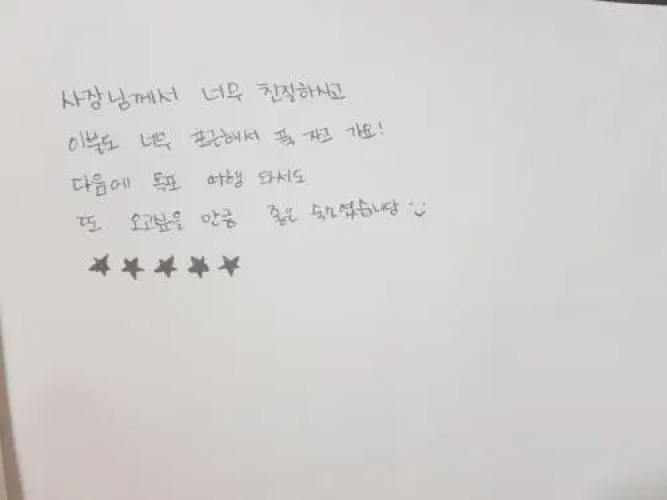 사장님께서 너무 친절하시고
이불도 너무 포근해서 푹 자고 가요!
다음에 목포 여행 와서도
또 오고싶을 만큼 좋은 숙소였습니당 :)
★★★★★